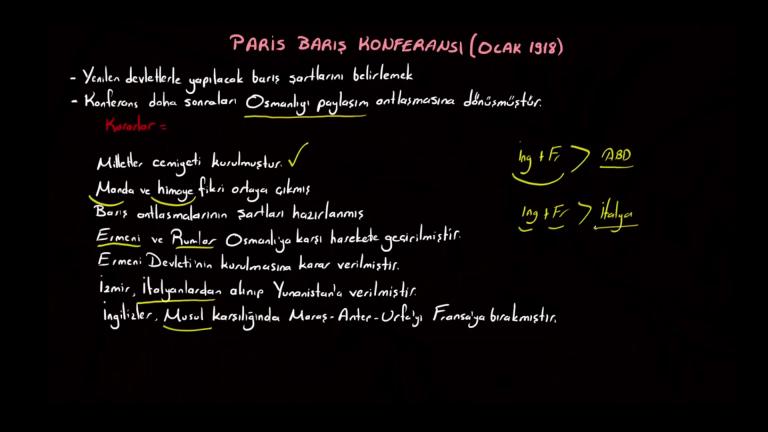 PARİS BARIŞ KONFERANSI (OCAK 1918)
- Yenilen devletlerle yapılacak barış şartlarını belirlemek
- Konferans daha sonraları Osmanlıyı paylaşım antlaşmasına dönüşmüştür.
Kararlar =
Milletler cemiyeti kurulmuştur. ✓
Manda ve himaye fikri ortaya çıkmış
Barış antlaşmalarının şartları hazırlanmış
Ermeni ve Rumlar Osmanlı'ya karşı harekete geçirilmiştir.
Ermeni Devleti'nin kurulmasına karar verilmiştir.
İzmir, İtalyanlardan alınıp Yunanistan'a verilmiştir.
İngilizler, Musul karşılığında Maraş-Antep-Urfa'yı Fransa'ya bırakmıştır.
İng + Fr > ABD
İng + Fr > İtalya